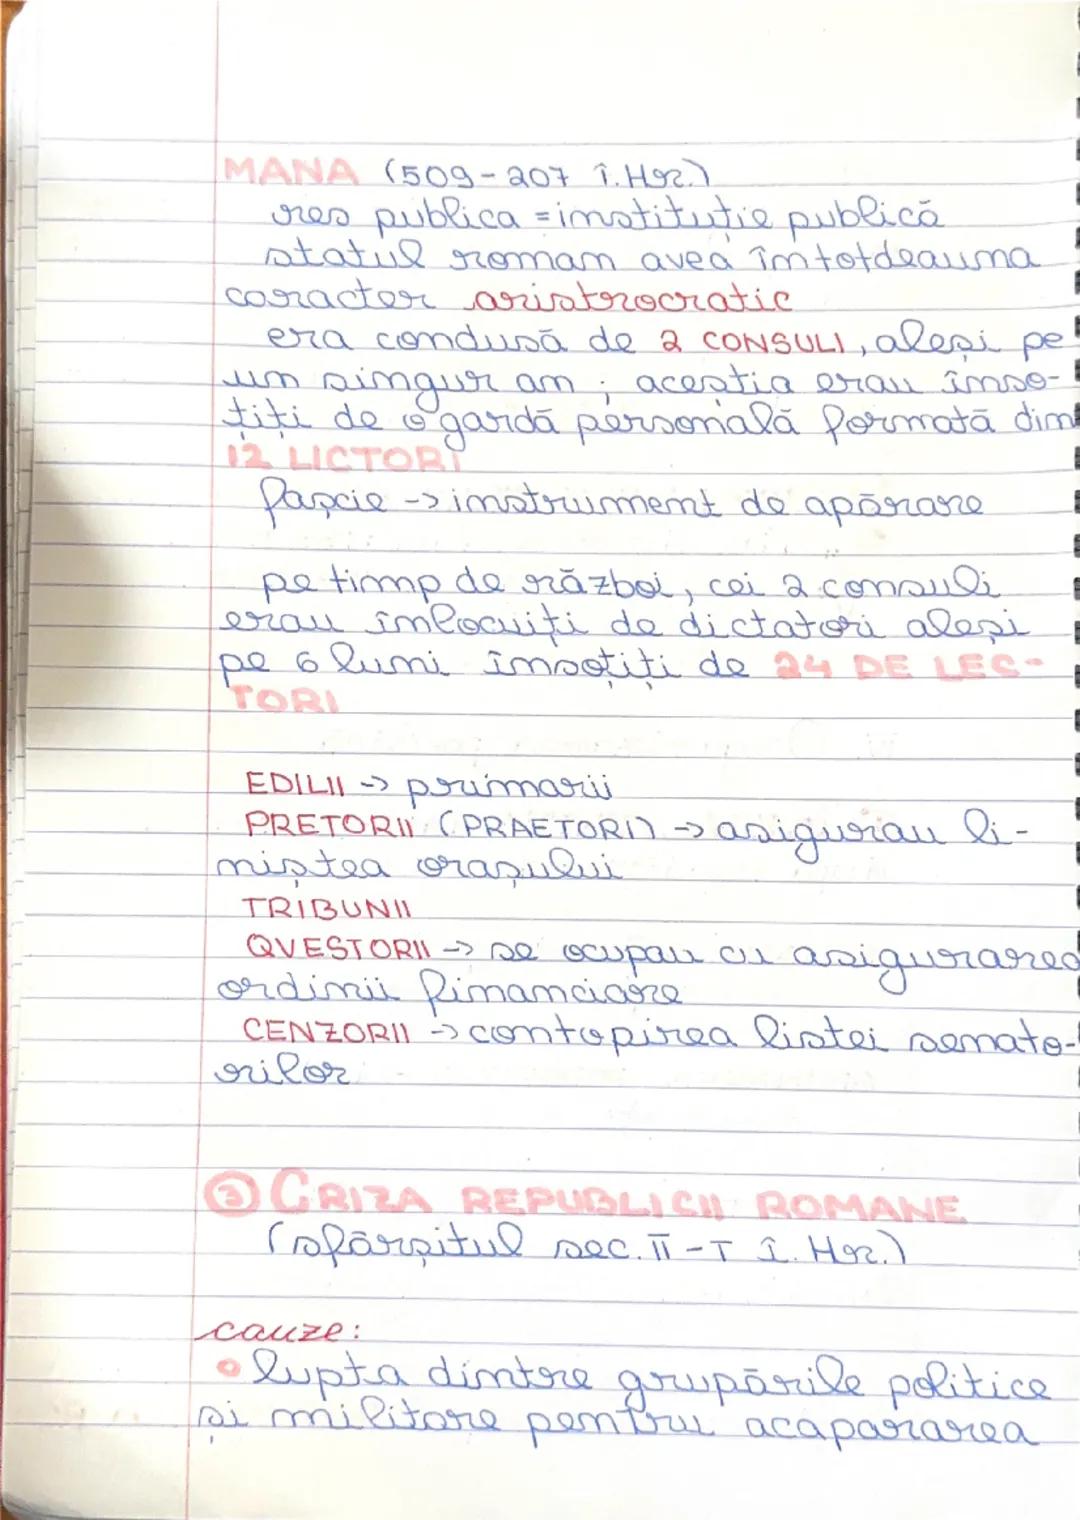 MANA (509-207 î.Hr.)
res publica = instituție publică
statul roman avea întotdeauna
caracter aristrocratic
era condusă de 2 CONSULI, aleși pe
un singur an; aceștia erau înso-
țiți de o gardă personală formată din
12 LICTORI
fașcie -> instrument de apărare
pe timp de război, cei 2 consuli
erau înlocuiți de dictatori aleși
pe 6 luni însoțiți de 24 DE LEC-
TORI
EDILII -> primarii
PRETORII (PRAETORI) -> asigurau li-
niștea orașului
TRIBUNII
QVESTORII -> se ocupau cu asigurarea
ordinii financiare
CENZORII -> contopirea listei senato-
rilor
③ CRIZA REPUBLICII ROMANE
(sfârșitul sec. II - I î. Hr.)
cauze:
lupta dintre grupările politice
și militare pentru acapararea